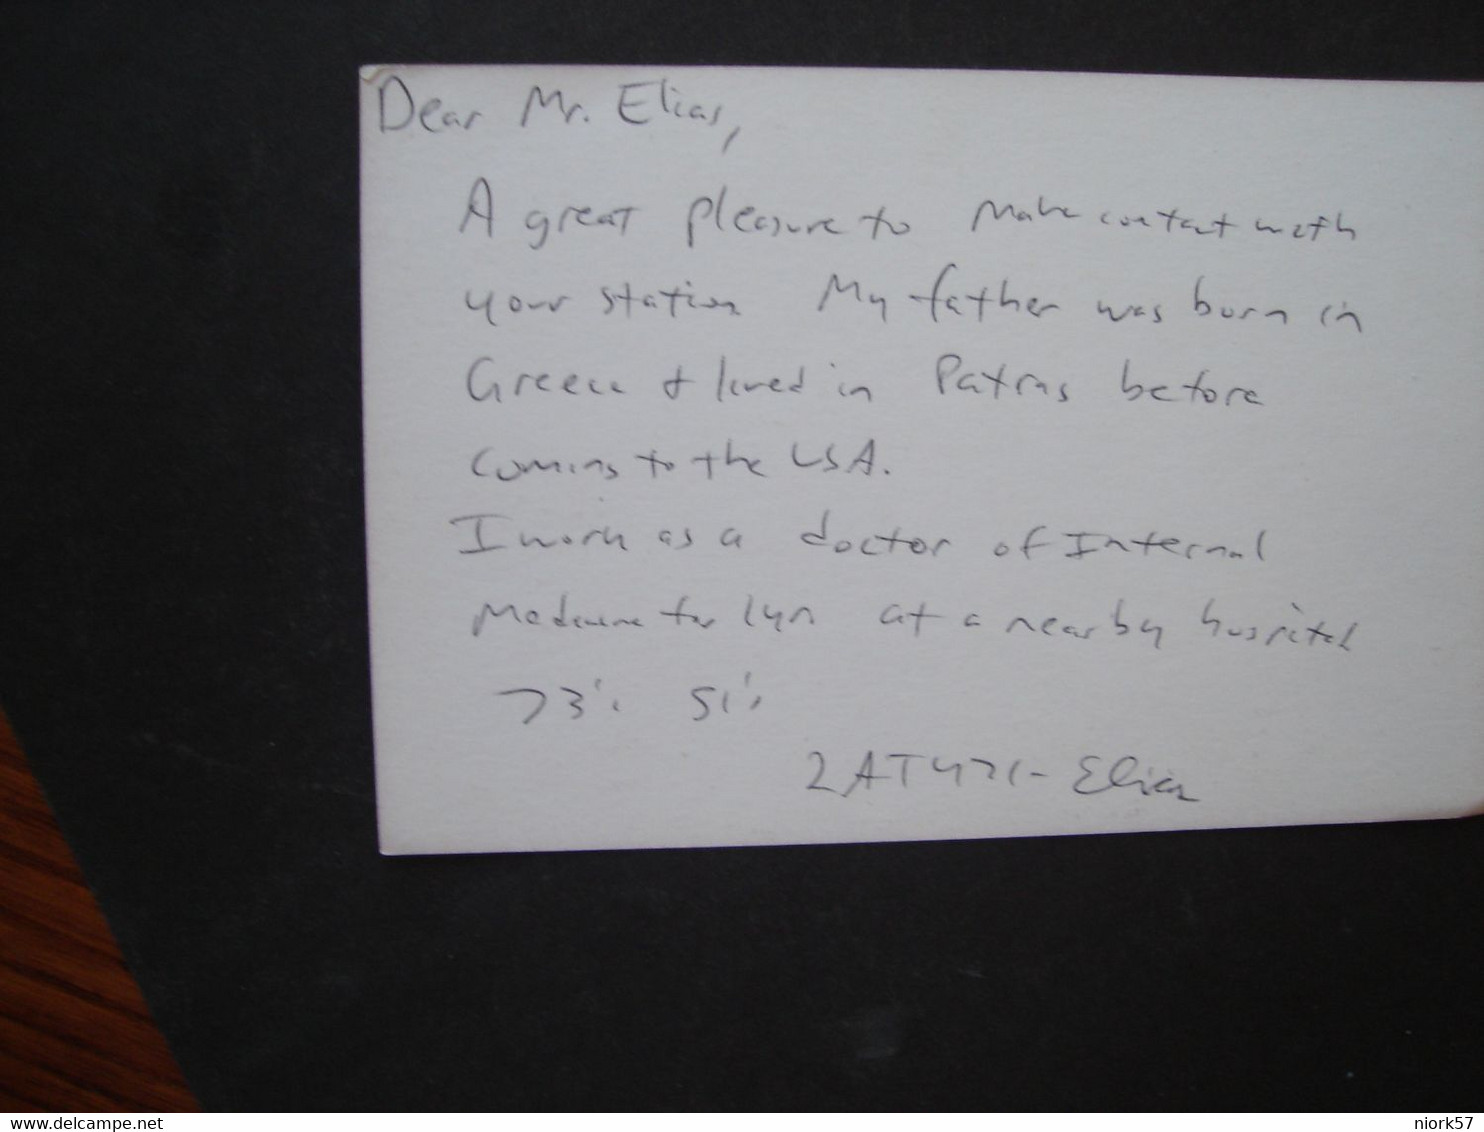 Dear Mr. Elias,
A great pleasure to make contact with
your station My father was born in
Greece & lived in Patras before
coming to the USA.
I work as a doctor of Internal
Medicine for 1yr at a nearby hospital
73's 51's
2AT471- Elias
delcampe.net
niork57